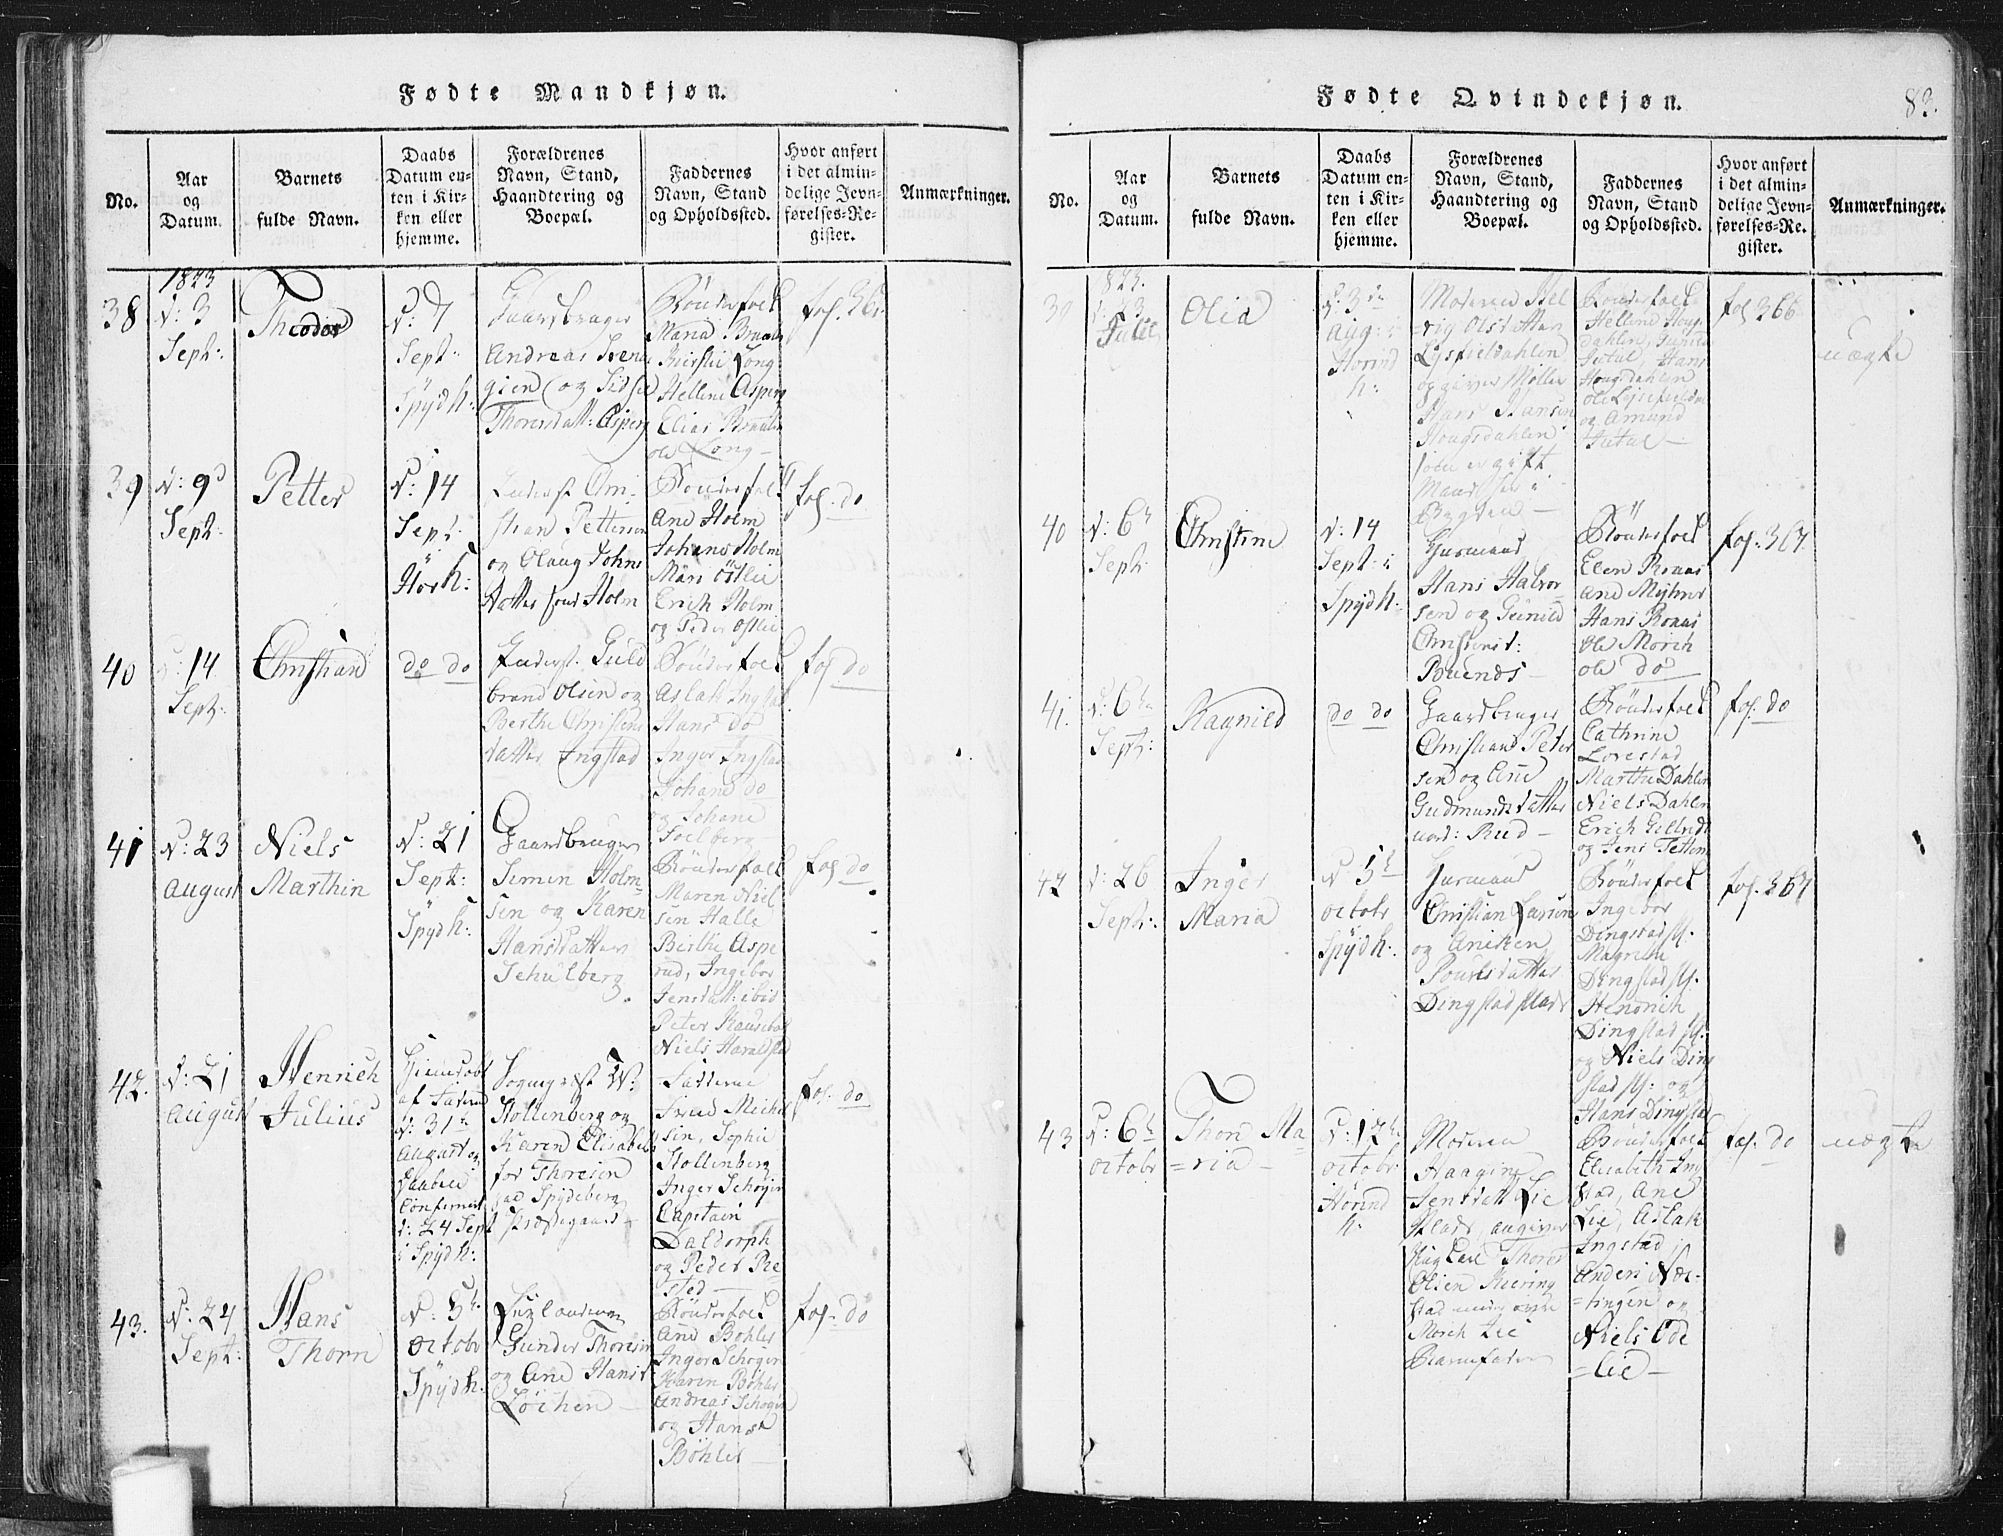 Fødte Mandkjøn.
No.
Aar
og
Datum.
Barnets
fulde Navn.
Daabs
Datum en-
ten i Kir-
ken eller
hjemme.
Forældrenes
Navn, Stand,
Haandtering og
Boepæl.
Faddernes
Navn, Stand
og Opholdssted.
Hvor anført
i det almin-
delige Jevn-
førelses-Re-
gister.
Anmærkninger.
38
1823
d: 3
Sept:
Theodor
d: 7
Sept:
Spydh:
Gaardbruger
Andreas
og Sidsel
Thoresdatt: Asperg
Bönderfolk
Maria
Kirstie Long
Helline Asperg
Elias
Ole Long
fol. 36
39
d: 9d
Sept:
Petter
d: 14
Sept:
Hörh:
Petterson
og Olaug Johns
datter Holm
Bönderfolk
Ane Holm
Johans Holm
Mari Östlie
Erich Holm
og Peder Östlie
fol. do
40
d: 14
Sept:
Christian
do do
Inderst. Guld
brand Olsen og
Berthe Christens
datter Ingstad
Bönderfolk
Aslak Ingstad
Hans do
Inger Ingstad
Johane do
og Johane
Foelberg
fol do
41
d: 23
August
Niels
Marthin
d: 21
Sept:
Spydh:
Gaardbruger
Simen Holm-
sen og Karen
Hansdatter
Schulberg
Bönderfolk
Maren Niel
sen Halle
Birthe Aspe
rud, Ingebor
Jensdatt: ibid
Peter
Niels Haraldstad
fol do
42.
d: 21
August
Henrich
Julius
Hiemdøbt
af
d: 31te
August og
Daaben
Confirmert
d: 24 Sept
i Spydh:
Sogneprest W:
Hollenberg og
Karen Elisabeth
for Thoresen
paa Spydeberg
Præstegaard
Fadderne
Frue Michel
sen, Sophie
Hollenberg
Inger Schøgen
Capitain
Daldorph
og Peder Re-
sted
fol. do
43.
d: 24
Sept:
Hans
Thorn
d: 5te
Octobr
Spydh:
Gunder Thoresen
og Ane Hansd
Löchen
Bönderfolk
Ane Böhler
Inger Schøgen
Karen Böhler
Andreas Schøgen
og Hans
Böhler
fol. do
Fødte Qvindekjøn.
83.
No.
Aar
og
Datum.
Barnets
fulde Navn.
Daabs
Datum en-
ten i Kir-
ken eller
hjemme.
Forældrenes
Navn, Stand,
Haandtering og
Boepæl.
Faddernes
Navn, Stand
og Opholdssted.
Hvor anført
i det almin-
delige Jevn-
førelses-Re-
gister.
Anmærkninger.
39
823.
d: 23
Julii
Olia
d: 3die
Aug: i
Hovind
h:
Moderen Hel
vig Olsdatter
Lysfieldahlen
opgiver Møller
Hans Hansen
Hougsdahlen
som er gift
Mand her i
Bygden
Bönderfolk
Helline Houg
dahlen,
Jutul, Hans
Hougsdahlen
Ole
og Amund
Jutul
fol 366
uægte
40
d: 6te
Sept:
Christine
d: 14
Sept: i
Spydh:
Huusmand
Hans Halvor
sen og Gunild
Christensd:
Buends
Bönderfolk
Elen Ronas
Ane Myhrer
Hans Ronas
Ole Morich
Ole do
fol. 367
41.
d: 6te
Sept:
Ragnild
do do
Gaardbruger
Christian Peter
sen og Ane
Gudmundsdatter
nord: Rud
Bönderfolk
Cathrine
Lovestad
Marthe Dahlen
Niels Dahlen
Erich
og Jens
fol. do
42
d: 26
Sept:
Inger
Maria
d 5te
Octobr
Spydh:
Huusmand
Christian Larsen
og Aniken
Poulsdatter
Dingstad Plads
Bönderfolk
Ingebor
Dingstad pl.
Magrethe
Dingstad pl.
Hendrich
Dingstad pl.
og Niels Ding
stad pl: og
Hans Dingstad
fol. 367
43
d: 6te
Octobr
Thon Ma
=ria
d: 12te
Octobr
Hovind
h:
Moderen
Haagine
Jensdatt Lie
Plads, angiver
Thores
Olsen
Morch Lie
Barnefader
Bönderfolk
Elisabeth Ing
stad, Ane
Lie, Aslak
Ingstad
Anders Næs-
=tingen og
Niels Ode
=lie
fol. do
uægte